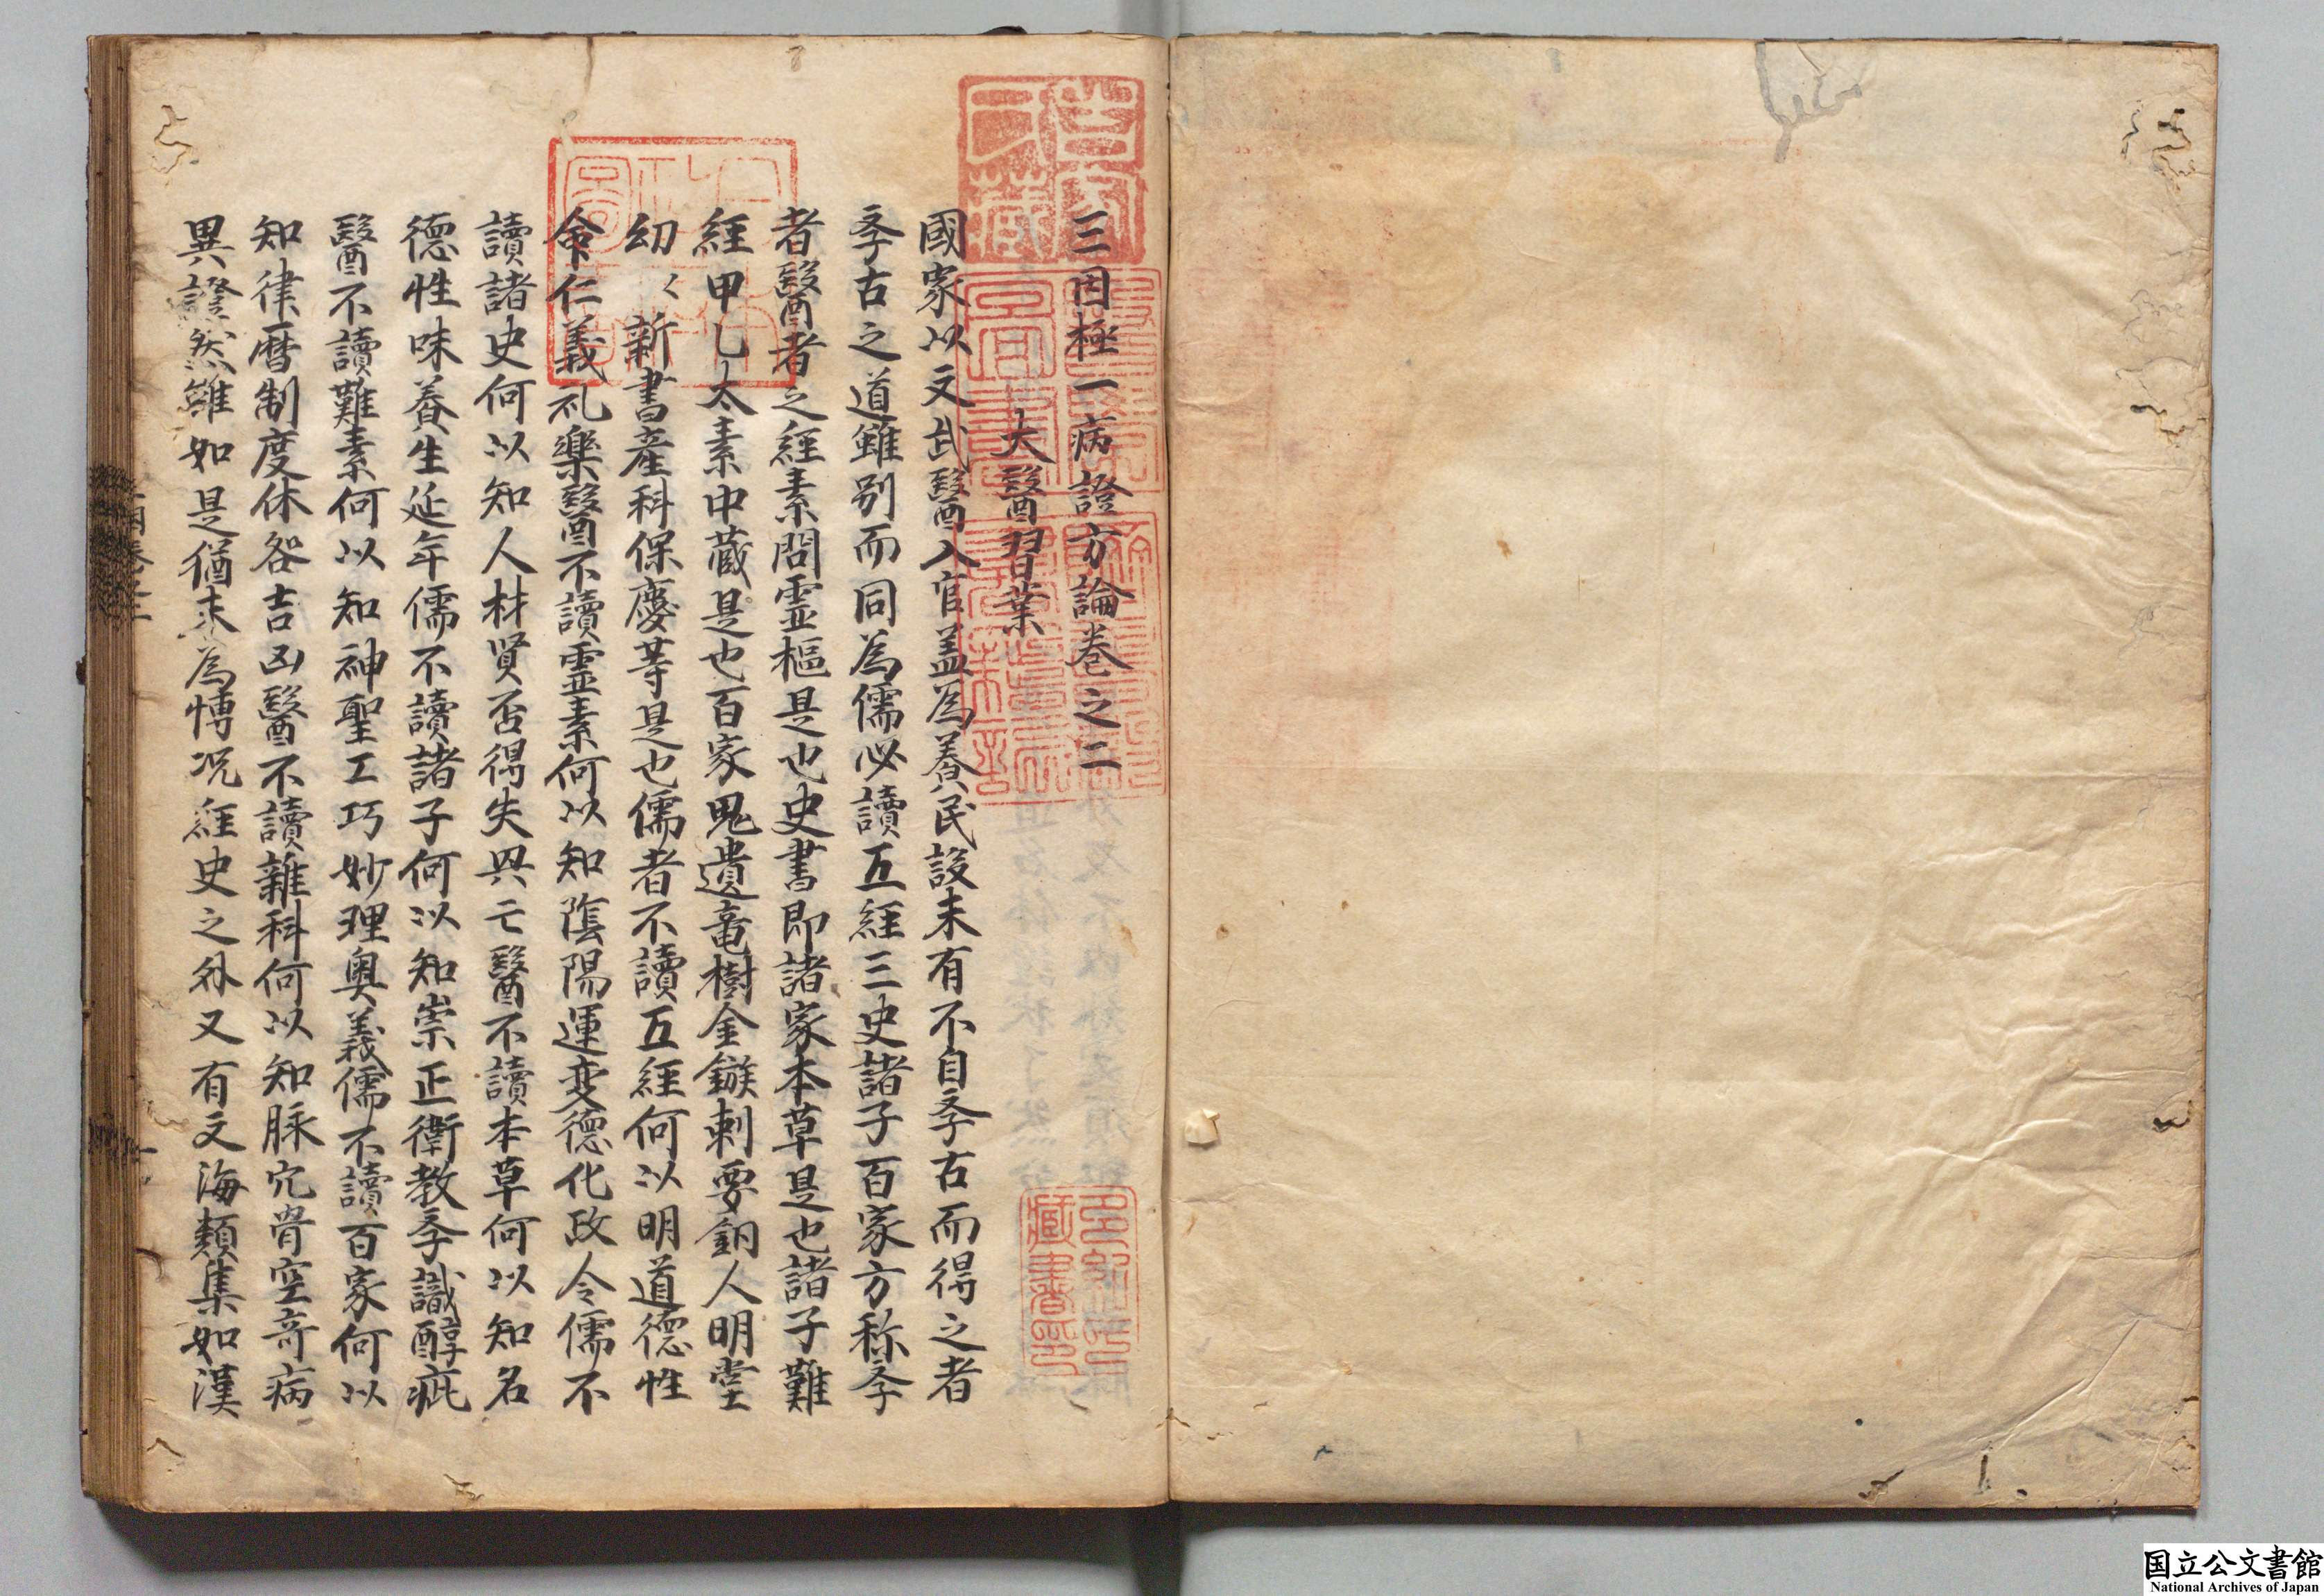 三因極一病證方論卷之二
大醫習業
國家以文武醫入官盖為養民設未有不自斈古而得之者
斈古之道雖別而同為儒必讀五經三史諸子百家方称斈
者醫者之經素問霊樞是也史書即諸家本草是也諸子難
經甲乙太素中藏是也百家鬼遺竜樹金鏃刺要銅人明堂
幻〻新書産科保慶等是也儒者不讀五經何以明道德性
命仁義礼樂醫不讀霊素何以知陰陽運変德化政令儒不
讀諸史何以知人材贤否得失興亡醫不讀本草何以知名
德性味養生延年儒不讀諸子何以知崇正衛教斈識醇疵
醫不讀難素何以知神聖工巧妙理奥義儒不讀百家何以
知律暦制度休咎吉凶醫不讀雜科何以知脉穴骨空竒病
異證然雖如是猶未為博况經史之外又有文海類集如漢
国立公文書館
National Archives of Japan